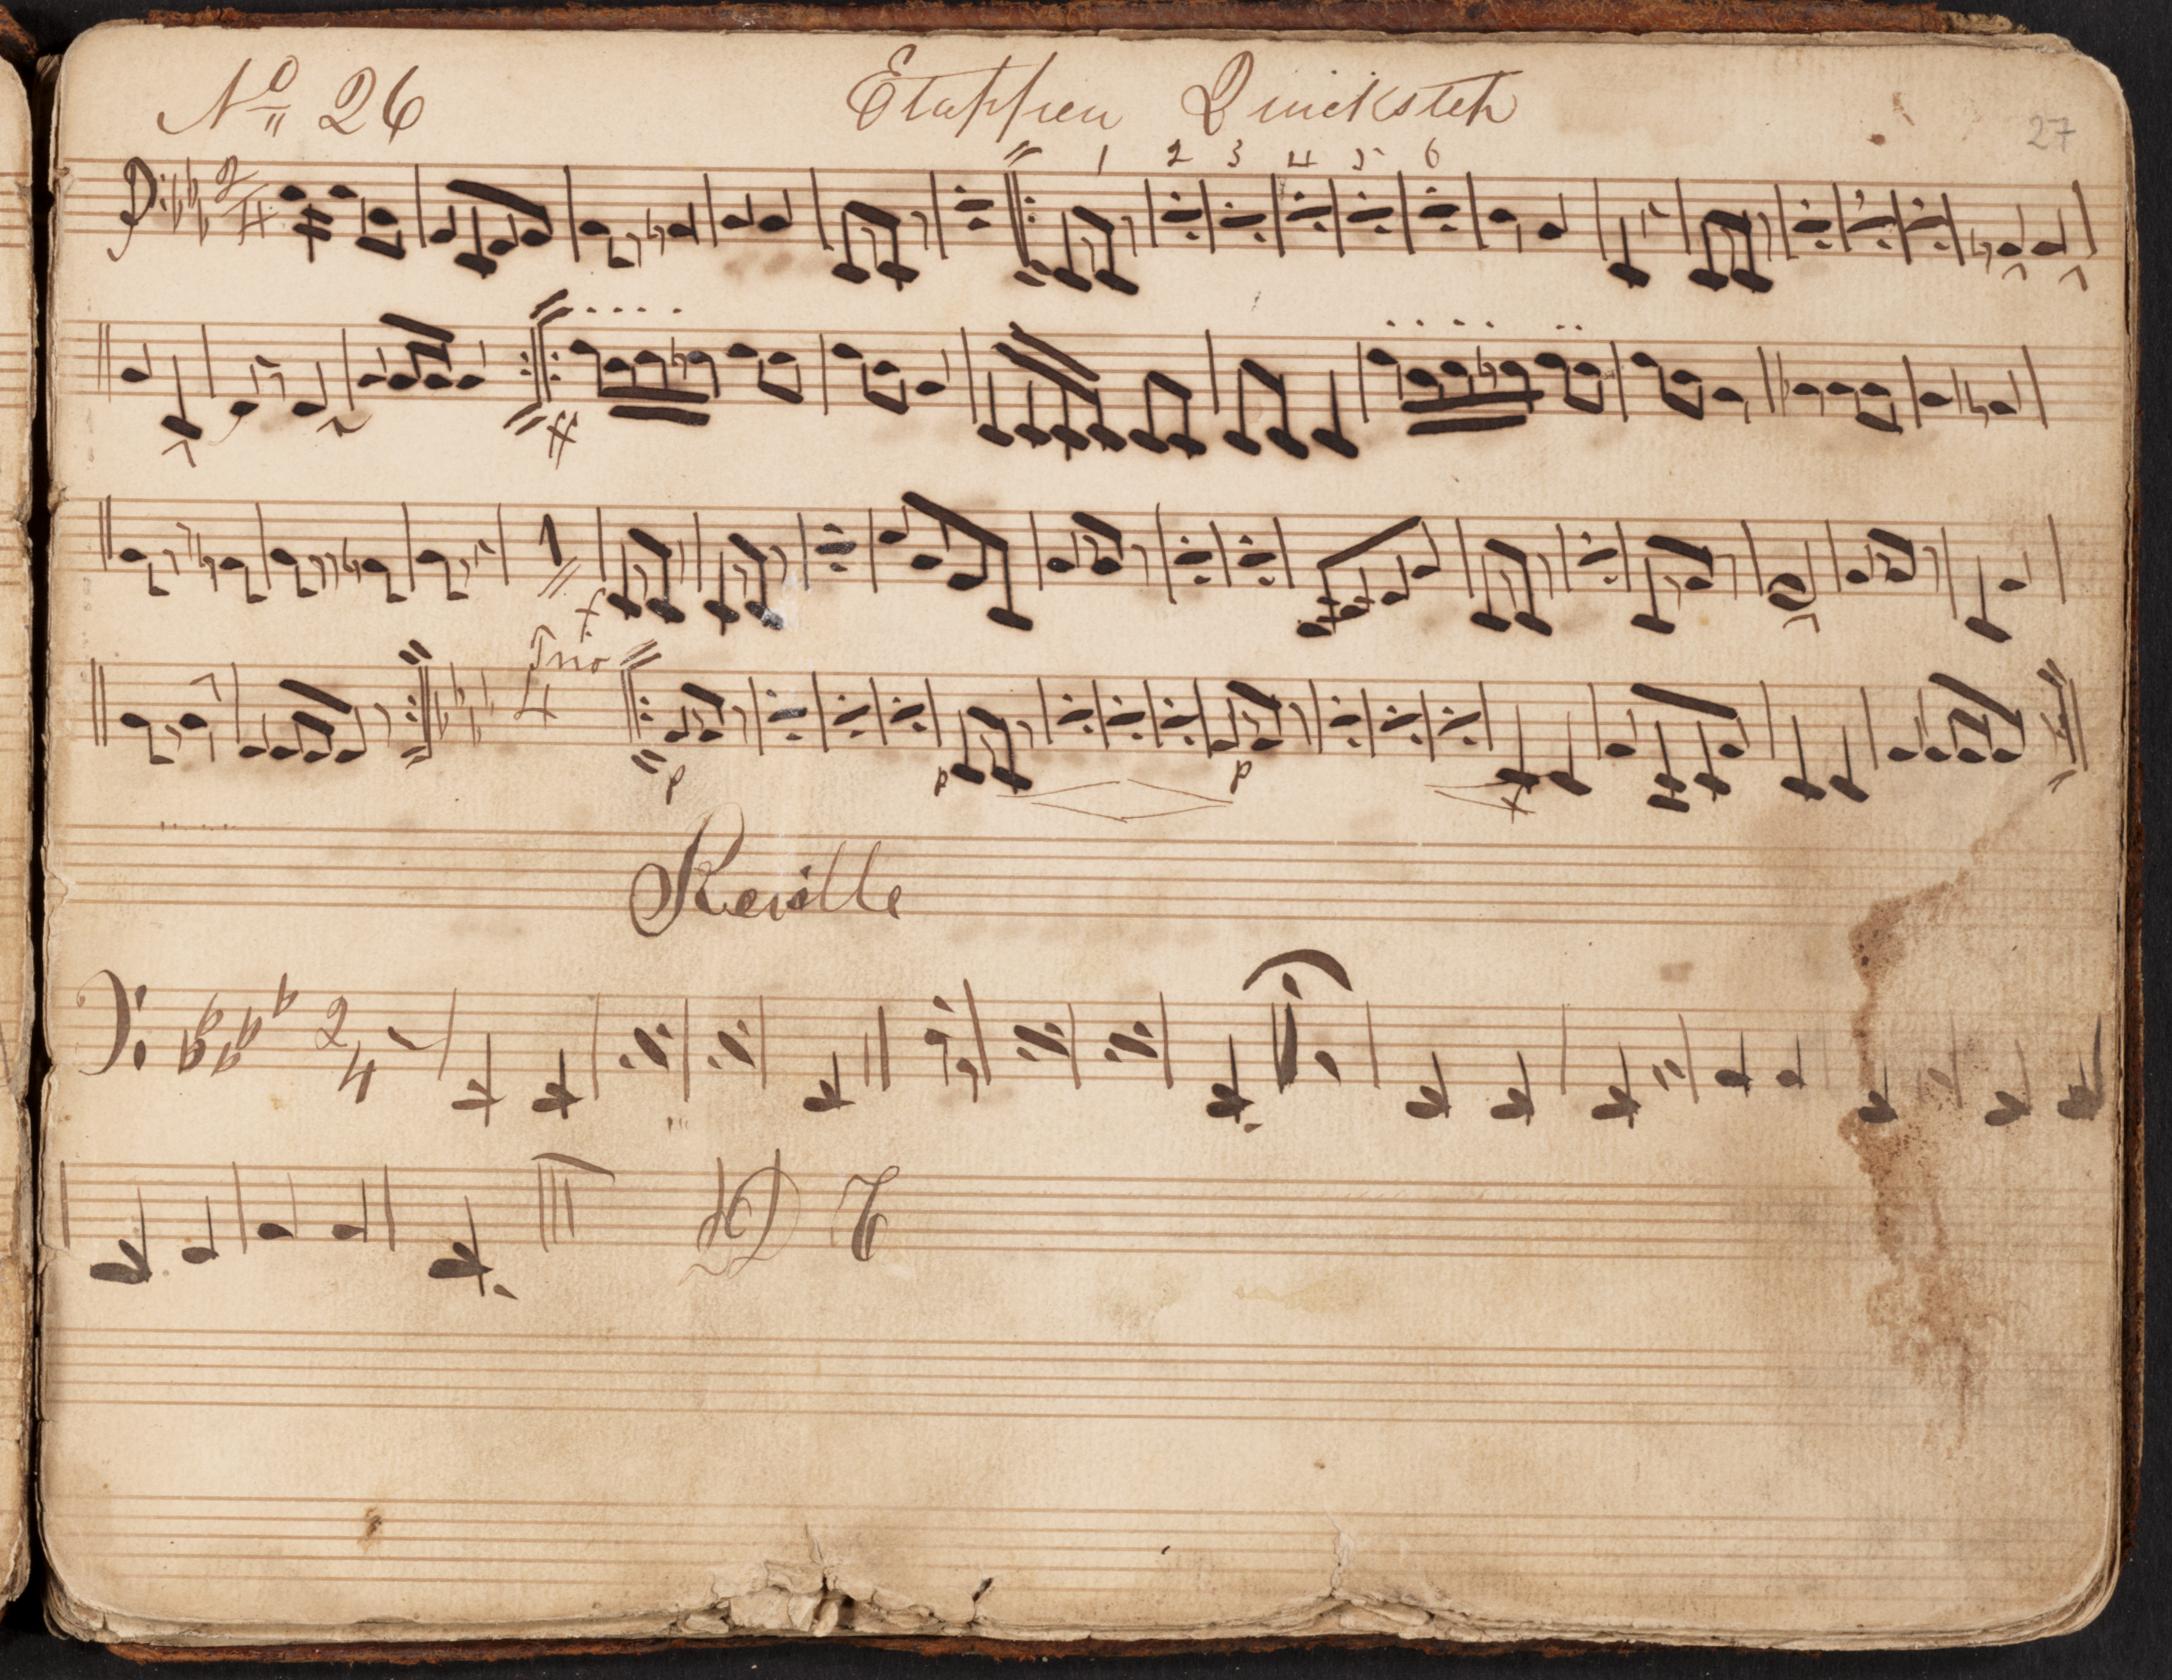 No 26 Etappen Quickstep 27
1 2 3 4 5 6
2/4
1
Trio
4
p p p
Reville
2/4